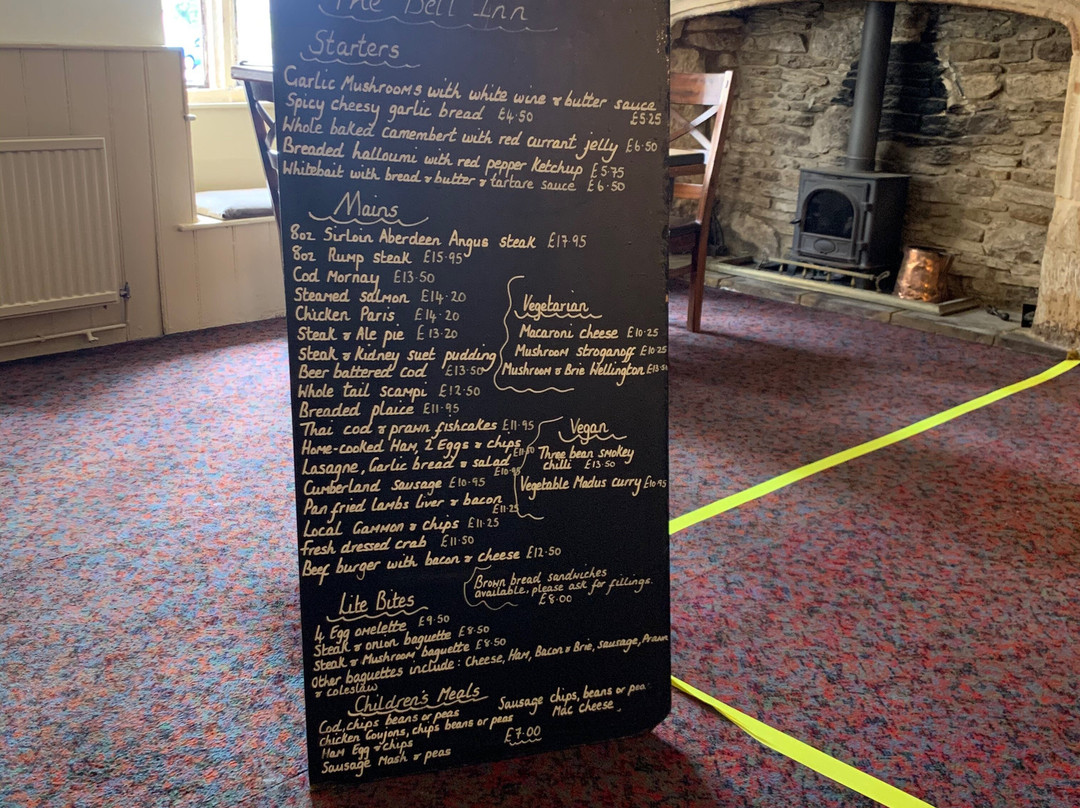 The Bell Inn
Starters
Garlic Mushrooms with white wine & butter sauce £5.25
Spicy cheesy garlic bread £4.50
Whole baked camembert with red currant jelly £6.50
Breaded halloumi with red pepper Ketchup £5.75
Whitebait with bread & butter & tartare sauce £6.50
Mains
8oz Sirloin Aberdeen Angus steak £17.95
8oz Rump steak £15.95
Cod Mornay £13.50
Steamed salmon £14.20
Chicken Paris £14.20
Steak & Ale pie £13.20
Steak & Kidney suet pudding
Beer battered cod £13.50
Whole tail scampi £12.50
Breaded plaice £11.95
Thai cod & prawn fishcakes £11.95
Home-cooked Ham, 2 Eggs & chips £11.50
Lasagne, Garlic bread & salad £10.95
Cumberland sausage £10.95
Pan fried lambs liver & bacon £11.25
Local Gammon & chips £11.25
Fresh dressed crab £11.50
Beef burger with bacon & cheese £12.50
Vegetarian
Macaroni cheese £10.25
Mushroom stroganoff £10.25
Mushroom & Brie Wellington £13.50
Vegan
Three bean smokey
chilli £13.50
Vegetable Madus curry £10.95
Brown bread sandwiches
available, please ask for fillings.
£8.00
Lite Bites
4 Egg omelette £9.50
Steak & onion baguette £8.50
Steak & Mushroom baguette £8.50
Other baguettes include: Cheese, Ham, Bacon & Brie, sausage, Prawn
& coleslaw
Children's Meals
Cod, chips beans or peas
Chicken Goujons, chips beans or peas
Ham Egg & chips
Sausage Mash & peas
Sausage chips, beans or peas
Mac cheese.
£7.00